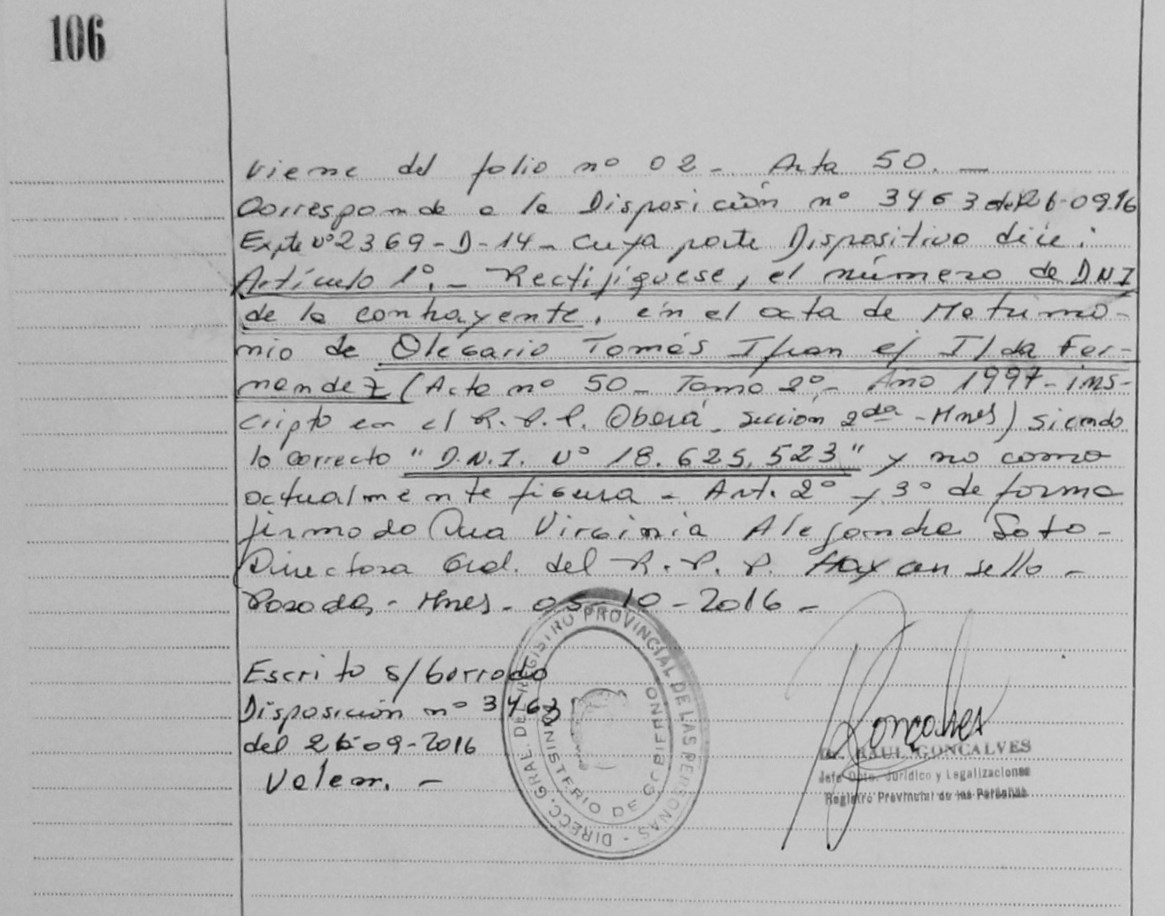 106
Viene del folio nº 02 - Acta 50. -
Corresponde a la Disposición nº 3463 del 26-09-16
Expte Nº 2369-D-14 - cuya parte Dispositiva dice:
Artículo 1º. - Rectifíquese, el número de DNI
de la contrayente, en el acta de Matrimo-
nio de Olegario Tomás Ifran c/ Ilda Fer-
nandez (Acta nº 50 - Tomo 2º - Año 1997 - ins-
cripto en el R.P.P. Oberá - Sección 2da - Mnes) siendo
lo correcto "D.N.I. Nº 18.625.523" y no como
actualmente figura - Art. 2º y 3º de forma
firmado Dra Virginia Alejandra Soto -
Directora Gral. del R.P.P. Hay un sello -
Posadas - Mnes - 05-10-2016 -
Escrito s/borrado
Disposición nº 3463
del 26-09-2016
Valem. -
DIRECC. GRAL. DEL REGISTRO PROVINCIAL DE LAS PERSONAS -
MINISTERIO DE GOBIERNO
Goncalves
Dr. RAUL GONCALVES
Jefe Dpto. Jurídico y Legalizaciones
Registro Provincial de las Personas